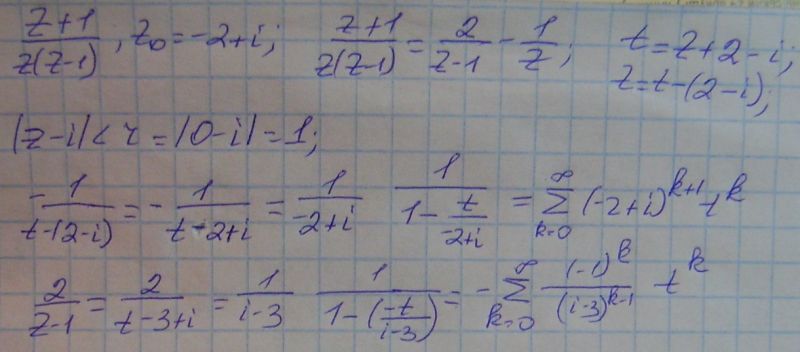 (z+1)/(z(z-1)), z₀=-2+i; (z+1)/(z(z-1)) = 2/(z-1) - 1/z; t=z+2-i;
z=t-(2-i);
|z-i|<r=|0-i|=1;
-1/(t-(2-i)) = -1/(t-2+i) = 1/(-2+i) 1/(1-t/(-2+i)) = ∑_{k=0}^{∞} (-2+i)^{k+1} t^k
2/(z-1) = 2/(t-3+i) = 1/(i-3) 1/(1-(-t/(i-3))) = -∑_{k=0}^{∞} (-1)^k/(i-3)^{k-1} t^k